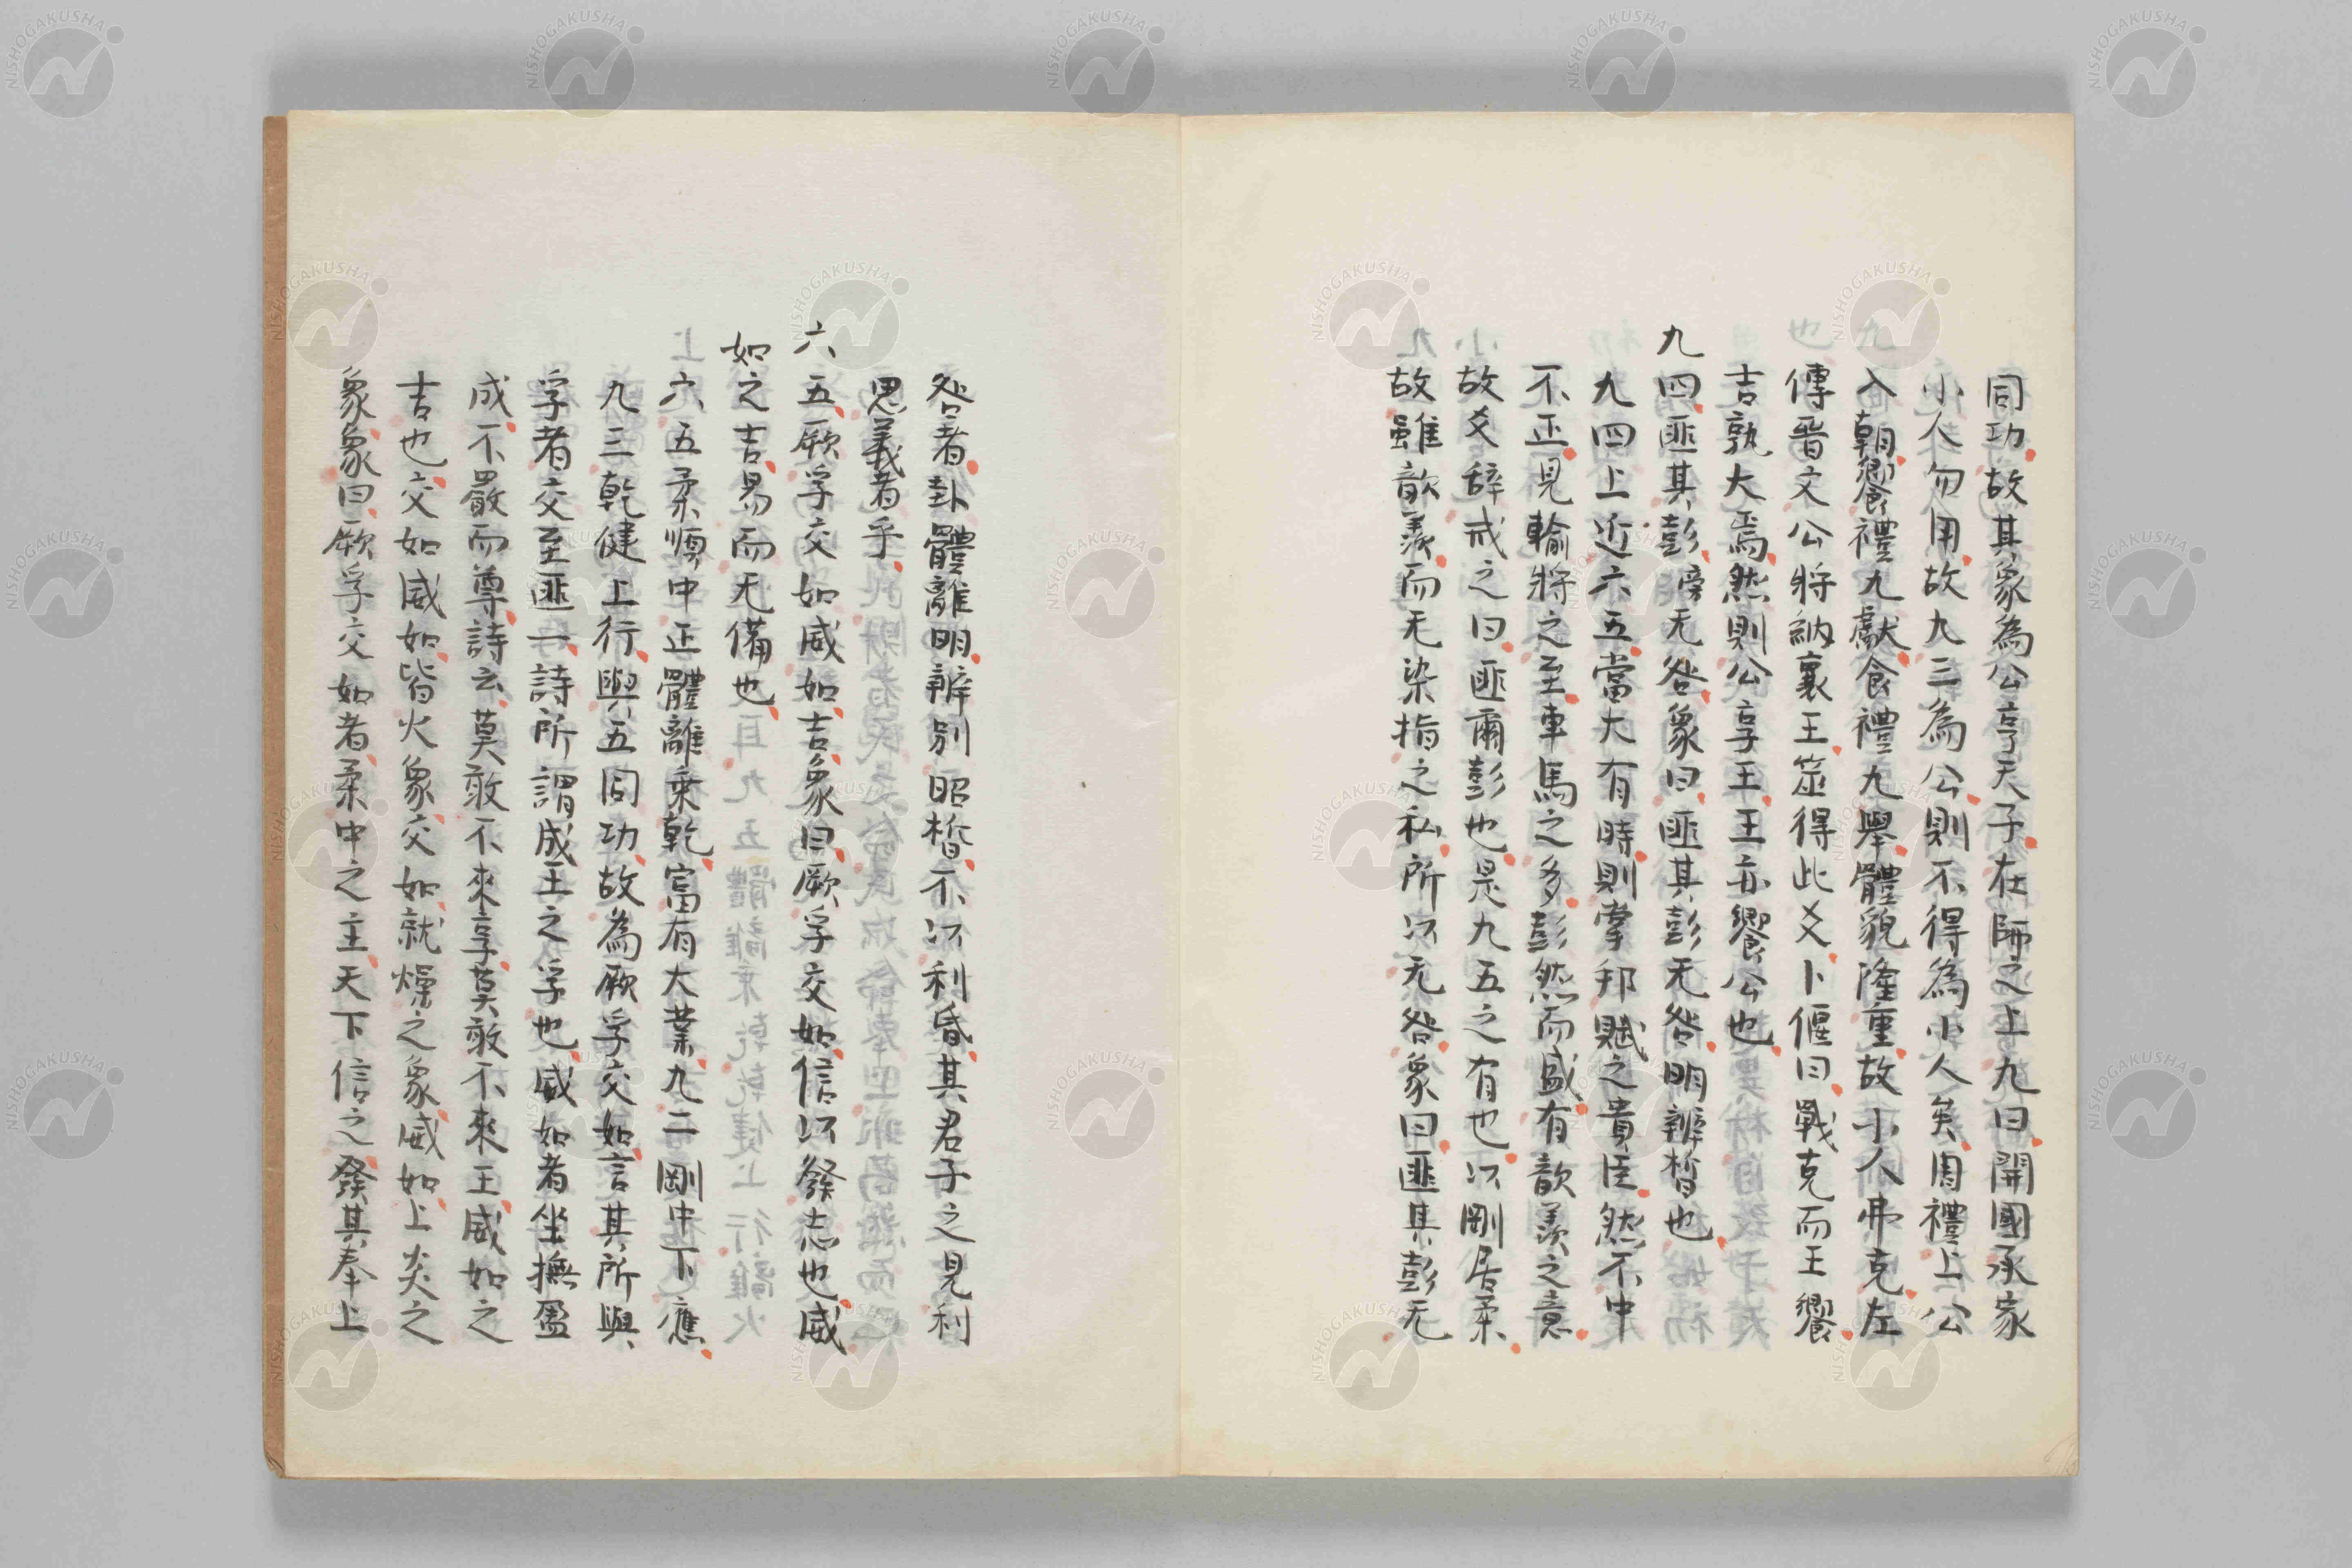 同功故其象為公亨天子在師之上九曰開國承家
小人勿用故九三為公則不得為小人矣周禮上公
入朝饗禮九獻食禮九舉體貌隆重故小人弗克左
傳晉文公將納襄王筮得此爻卜偃曰戰克而王饗
吉孰大焉然則公享王王亦饗公也
九四匪其彭旁无咎象曰匪其彭无咎明辨晳也
九四上近六五當大有時則掌邦賦之貴臣然不中
不正見輸將之至車馬之多彭然而盛有歆羨之意
故爻辭戒之曰匪爾彭也是九五之有也以剛居柔
故雖歆羨而无染指之私所以无咎象曰匪其彭无
咎者卦體離明辨別昭晳不以利昏其君子之見利
思義者乎
六五厥孚交如威如吉象曰厥孚交如信以發志也威
如之吉易而无備也
六五柔順中正體離乘乾富有大業九二剛中下應
九三乾健上行與五同功故為厥孚交如言其所與
孚者交至匪一詩所謂成王之孚也威如者坐撫盈
成不嚴而尊詩云莫敢不來享莫敢不來王威如之
吉也交如威如皆火象交如就燥之象威如上炎之
象象曰厥孚交如者柔中之主天下信之發其奉上
NISHOGAKUSHA